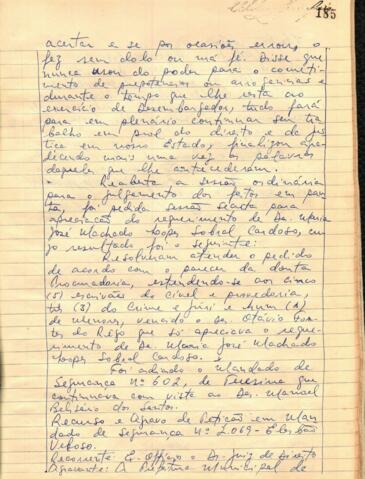 185
acertar e se por ocasiões errou, o
fez sem dolo ou má fé. Disse que
nunca usou do poder para o cometi-
mento de prepotencias ou arrogancias e
durante o tempo que lhe resta ao
exercício de Desembargador, tudo fará
para em plenário continuar seu tra
balho em prol do direito e da jus
tiça em nosso Estado, finalizou agra
decendo mais uma vez as palavras
daqueles que lhe antecederam.
Reaberta a sessão ordinária
para o julgamento dos feitos em pau
ta, foi pedida sessão secreta para
apreciação do requerimento de Da. Maria
José Machado Lopes Sobral Cardoso, cu
jo resultado foi o seguinte:
Resolveram atender o pedido
de acordo com o parecer da douta
Procuradoria, estendendo-se aos cinco
(5) escrivães do Civel e provedoria,
três (3) do Crime e juri e hum (1)
de Menores, vencido o Des. Otávio For
tes do Rêgo que só apreciava o reque-
rimento de Da. Maria José Machado
Lopes Sobral Cardoso.
Foi adiado o Mandado de
Segurança Nº 602, de Teresina que
continuava com vista ao Des. Manoel
Belisário dos Santos.
Recurso e Agravo de Petição em Man
dado de Segurança Nº 2.069 - Elesbão
Veloso.
Recorrente: Ex-Officio o Dr. Juiz de Direito
Agravante: A Prefeitura Municipal de